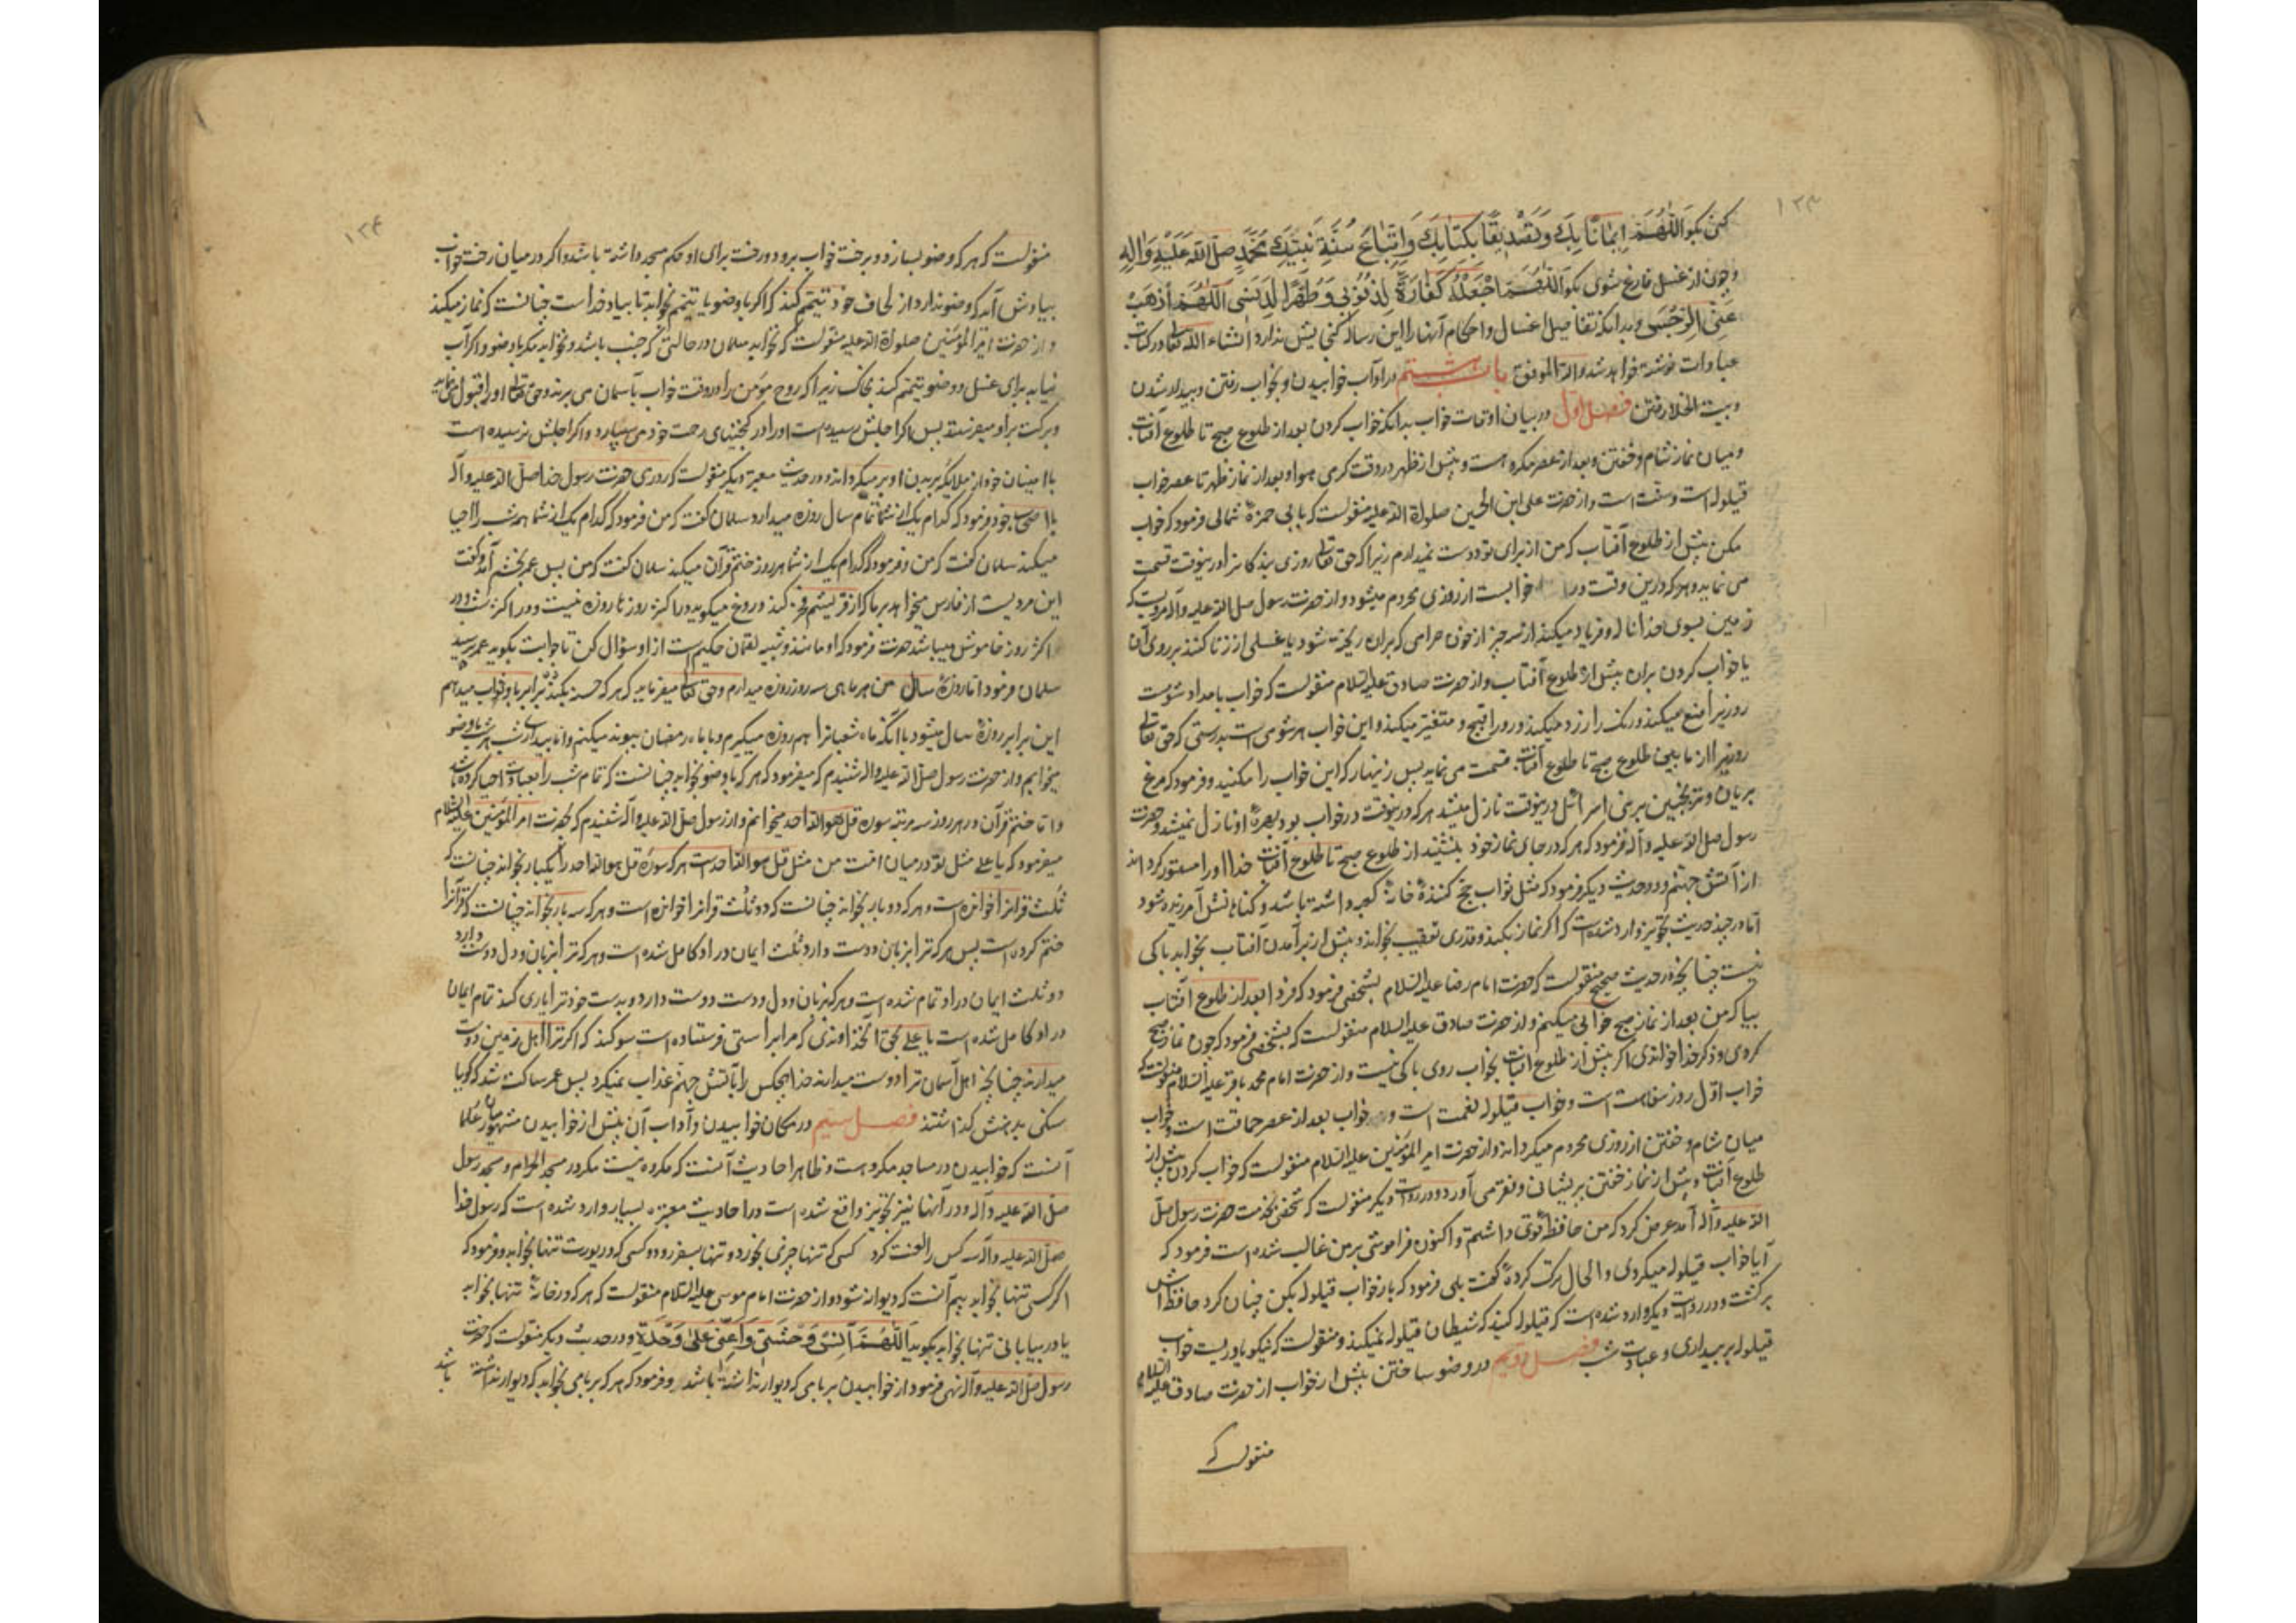 ۱۲۳
کنی بگو اَللّهُمَّ اِیمَانًا بِكَ وَتَصْدِیقًا بِکِتَابِكَ وَاِتِّبَاعَ سُنَّةِ نَبِیِّكَ مُحَمَّدٍ صَلَّی اللّهُ عَلَیْهِ وَالِهِ
و چون از غسل فارغ شوی بگو اَللّهُمَّ اجْعَلْهُ کَفَّارَةً لِذُنُوبِی وَطَهِّرْ لِی دِینِی اَللّهُمَّ اَذْهِبْ
عَنِّی الرِّجْسَ و بدانکه تفاصیل اغسال و احکام آنها را این رساله گنجایش ندارد انشاء الله تعالی در کتاب
عبادات نوشته خواهد شد والله الموفق باب هشتم در آداب خوابیدن و بخواب رفتن و بیدار شدن
و بیت الخلا رفتن فصل اول در بیان اوقات خواب بدانکه خواب کردن بعد از طلوع صبح تا طلوع آفتاب
و میان نماز شام و خفتن و بعد از عصر مکروه است و پیش از ظهر در وقت گرمی هوا و بعد از نماز ظهر تا عصر خواب
قیلوله است و سنت است و از حضرت علی ابن الحسین صلوة الله علیه منقولست که بابی حمزهٔ ثمالی فرمود که خواب
مکن پیش از طلوع آفتاب که من از برای تو دوست نمیدارم زیرا که حق تعالی روزی بندگانرا درینوقت قسمت
می نماید و هر که درین وقت در خوابست از روزی محروم میشود و از حضرت رسول صلی الله علیه وآله مرویست که
زمین بسوی خدا ناله و فریاد میکند از سه چیز از خون حرامی که بر ان ریخته شود یا غسلی از زنا کنند بر روی آن
یا خواب کردن بران پیش از طلوع آفتاب و از حضرت صادق علیه السلام منقولست که خواب بامداد شومست
روزیرا منع میکند و رنگ را زرد میکند و رو را قبیح و متغیر میکند و این خواب هر شومی است بدرستی که حق تعالی
روزیرا از مابین طلوع صبح تا طلوع آفتاب قسمت می نماید پس زینهار که این خواب را مکنید و فرمود که مرغ
بریان و ترنجبین بر بنی اسرائیل درینوقت نازل میشد هر که درینوقت در خواب بود بهرهٔ او نازل نمیشد و حضرت
رسول صلی الله علیه وآله فرمود که هر که در جای نماز خود بنشیند از طلوع صبح تا طلوع آفتاب خدا او را مستور گرداند
از آتش جهنم و در حدیث دیگر فرمود که مثل ثواب حج کنندهٔ خانهٔ کعبه داشته باشد و گناهانش آمرزیده شود
اما در چند حدیث تجویز وارد شده است که اگر نماز بکند و قدری تعقیب بخواند و پیش از برآمدن آفتاب بخوابد باکی
نیست چنانچه در حدیث صحیح منقولست که حضرت امام رضا علیه السلام بشخصی فرمود که فردا بعد از طلوع افتاب
بیا که من بعد از نماز صبح خوابی میکنم و از حضرت صادق علیه السلام منقولست که بشخصی فرمود که چون نماز صبح
کردی و ذکر خدا خواندی اگر پیش از طلوع افتاب بخواب روی باکی نیست و از حضرت امام محمد باقر علیه السلام منقولست که
خواب اول روز سفاهت است و خواب قیلوله نعمت است و خواب بعد از عصر حماقت است و خواب
میان شام و خفتن از روزی محروم میگرداند و از حضرت امیر المؤمنین علیه السلام منقولست که خواب کردن پیش از
طلوع آفتاب و پیش از نماز خفتن پریشانی و فقر می آورد و در روایت دیگر منقولست که شخصی بخدمت حضرت رسول صلی
الله علیه وآله آمد عرض کرد که من حافظهٔ قوی داشتم و اکنون فراموشی بر من غالب شده است فرمود که
آیا خواب قیلوله میکردی و الحال ترک کردهٔ گفت بلی فرمود که باز خواب قیلوله بکن چنان کرد حافظه اش
برگشت و در روایت دیگر وارد شده است که قیلوله کنید که شیطان قیلوله نمیکند و منقولست که نیکو یاوریست خواب
قیلوله بر بیداری و عبادت شب فصل دویم در وضو ساختن پیش از خواب از حضرت صادق علیه السلام
منقولست که
۱۲۴
منقولست که هر که وضو بسازد و برخت خواب برود و رخت برای او حکم مسجد داشته باشد و اگر در میان رخت خواب
بیادش آمد که وضو ندارد از لحاف خود تیمم کند که اگر با وضو یا تیمم بخوابد تا بیاد خدا است چنانست که نماز میکند
و از حضرت امیر المؤمنین صلوة الله علیه منقولست که نخوابد مسلمان در حالتی که جنب باشد و نخوابد مگر با وضو و اگر آب
نیابد برای غسل و وضو تیمم کند بخاک زیرا که روح مؤمن را در وقت خواب بآسمان می برند و حق تعالی او را قبول می نماید
و برکت بر او میفرستد پس اگر اجلش رسیده است او را در گنجینهای رحت خود می سپارد و اگر اجلش نرسیده است
با امینان خود از ملایکه ببدن او بر میگرداند و در حدیث معتبر دیگر منقولست که روزی حضرت رسول خدا صلی الله علیه وآله
با اصحاب خود فرمود که کدام یک از شما تمام سال روزه میدارد سلمان گفت که من فرمود که کدام یک از شما همه شب را احیا
میکند سلمان گفت که من و فرمود که کدام یک از شما هر روز ختم قرآن میکند سلمان گفت که من پس عمر بخشم آمد و گفت
این مردیست از فارس میخواهد بر ما که از قریشیم فخر کند دروغ میگوید در اکثر روزها روزه نیست و در اکثر شب و در
اکثر روز خاموش میباشد حضرت فرمود که او مانند و شبیه لقمان حکیم است از او سؤال کن تا جوابت بگوید عمر پرسید
سلمان فرمود اما روزهٔ سال من هر ماهی سه روز روزه میدارم و حق تعالی میفرماید که هر که حسنه بکند ده برابر باو ثواب میدهم
این برابر روزهٔ سال میشود با آنکه ماه شعبانرا هم روزه میگیرم و با ماه رمضان پیوند میکنم و اما بیداری شب هر شب با وضو
میخوابم و از حضرت رسول صلی الله علیه واله شنیدم که میفرمود که هر که با وضو بخوابد چنانست که تمام شب را بعبادت احیا کرده باشد
و اما ختم قرآن در هر روز سه مرتبه سوره قل هو الله احد میخوانم و از رسول صلی الله علیه وآله شنیدم که بحضرت امیر المؤمنین علیه السلام
میفرمود که یا علی مثل تو در میان امت من مثل قل هو الله احد است هر که سورهٔ قل هو الله احد را یکبار بخواند چنانست که
ثلث قرانرا خوانده است و هر که دو بار بخواند چنانست که دو ثلث قرانرا خوانده است و هر که سه بار بخواند چنانست که قرآنرا
ختم کرده است پس هر که ترا بزبان دوست دارد ثلث ایمان در او کامل شده است و هر که ترا بزبان و دل دوست دارد
دو ثلث ایمان در او تمام شده است و هر که بزبان و دل دوست دوست دارد و بدست خود ترا یاری کند تمام ایمان
در او کامل شده است یا علی بحق آنخداوندی که مرا براستی فرستاده است سوگند که اگر ترا اهل زمین دوست
میدارند چنانچه اهل آسمان ترا دوست میدارند خدا هیچکس را بآتش جهنم عذاب نمیکرد پس عمر ساکت شد که گویا
سنگی بدهنش گذاشتند فصل سیم در مکان خوابیدن و آداب آن پیش از خوابیدن مشهور میان علما
آنست که خوابیدن در مساجد مکروهست و ظاهر احادیث آنست که مکروه نیست مگر در مسجد الحرام و مسجد رسول
صلی الله علیه وآله و در آنها نیز تجویز واقع شده است در احادیث معتبره بسیار وارد شده است که رسول خدا
صلی الله علیه وآله سه کس را لعنت کرد کسی که تنها چیزی بخورد و تنها بسفر رود و کسی که در یورت تنها بخوابد و فرمود که
اگر کسی تنها بخوابد بیم آنست که دیوانه شود و از حضرت امام موسی علیه السلام منقولست که هر که در خانهٔ تنها بخوابد
یا در بیابانی تنها بخوابد بگوید اَللّهُمَّ آنِسْ وَحْشَتِی وَاَعِنِّی عَلَی وَحْدَتِی و در حدیث دیگر منقولست که حضرت
رسول صلی الله علیه وآله نهی فرمود از خوابیدن بر بامی که دیوار نداشته باشد و فرمود که هر که بر بامی بخوابد که دیوار نداشته باشد